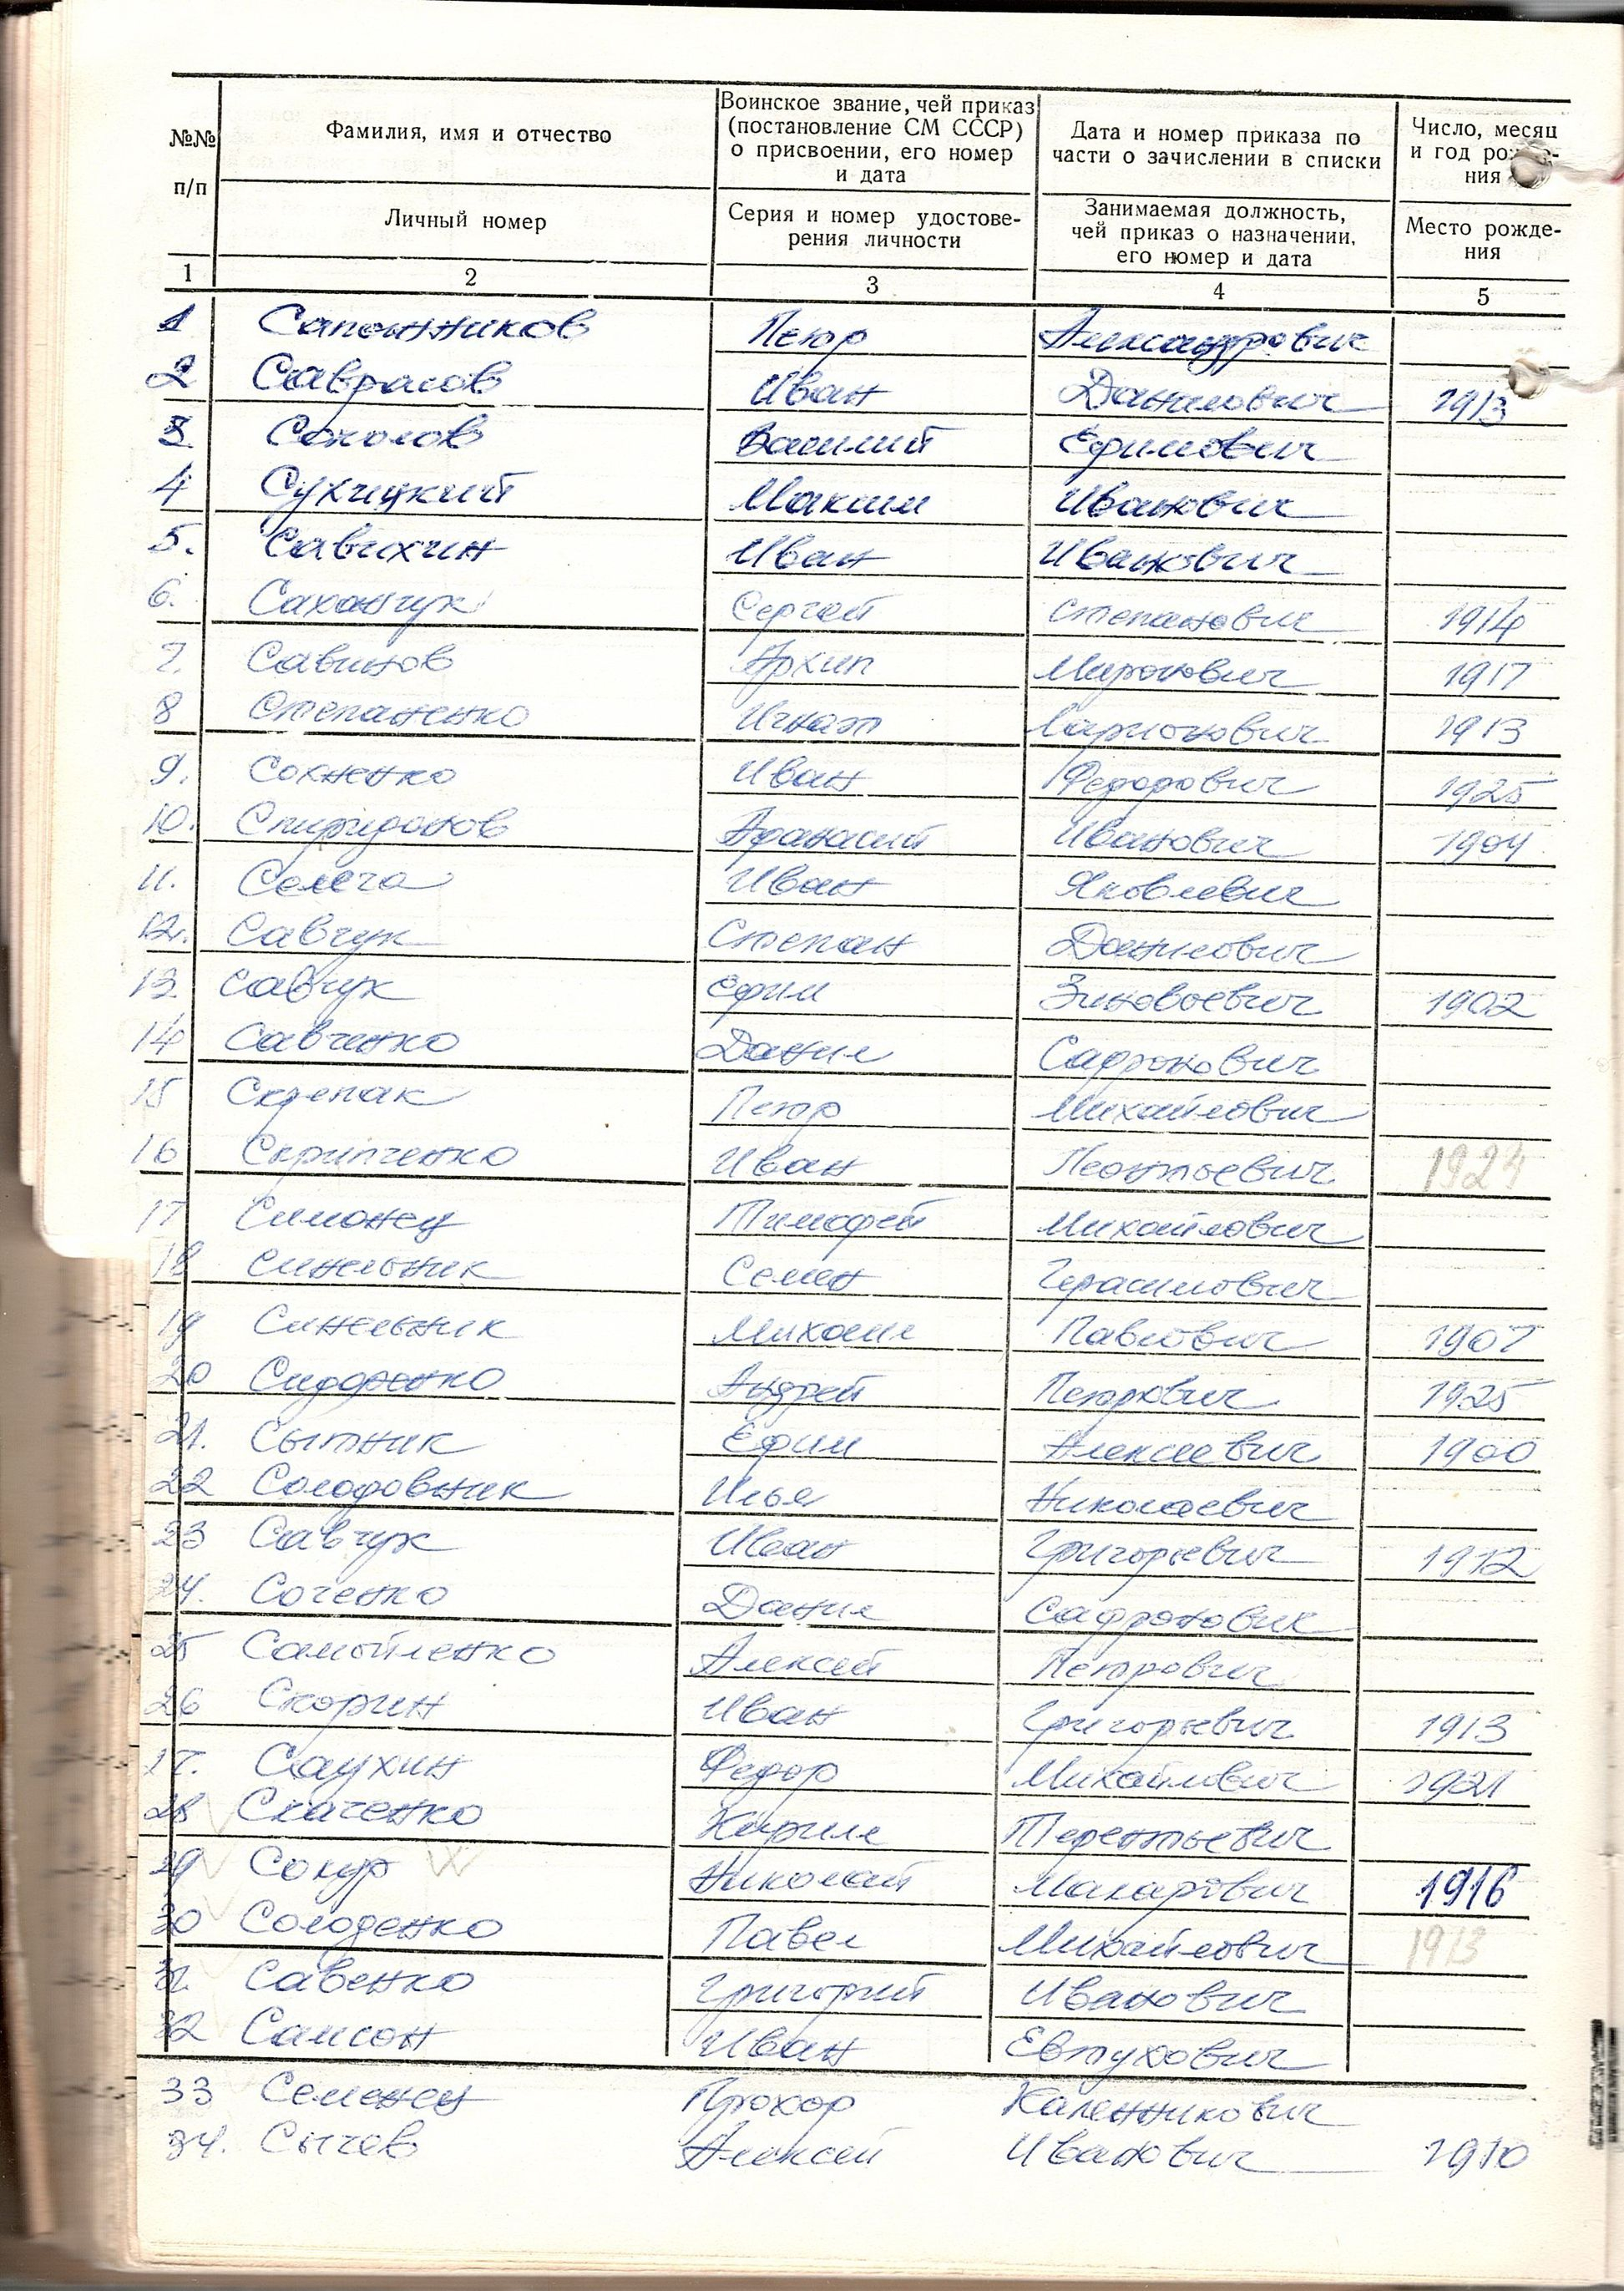 №№ п/п
Фамилия, имя и отчество
Личный номер
Воинское звание, чей приказ
(постановление СМ СССР)
о присвоении, его номер
и дата
Серия и номер удостове-
рения личности
Дата и номер приказа по
части о зачислении в списки
Занимаемая должность,
чей приказ о назначении,
его номер и дата
Число, месяц
и год рожде-
ния
Место рожде-
ния
1 2 3 4 5
1 Сапонников Петр Александрович
2 Саврасов Иван Данилович 1913
3. Соколов Василий Ефимович
4 Сухицкий Максим Иванович
5. Савихин Иван Иванович
6. Саханчук Сергей Степанович 1914
7. Савинов Архип Миронович 1917
8 Степаненко Игнат Ларионович 1913
9. Сохненко Иван Федорович 1925
10. Спиридонов Афанасий Иванович 1904
11. Селега Иван Яковлевич
12. Савчук Степан Данилович
13. Савчук Ефим Зиновьевич 1902
14 Савченко Данил Сафронович
15 Скрепак Петр Михайлович
16 Скрипченко Иван Леонтьевич 1924
17 Симонец Тимофей Михайлович
18 Синельник Семен Герасимович
19 Синельник Михаил Павлович 1907
20 Сидоренко Андрей Петрович 1925
21. Сытник Ефим Алексеевич 1900
22 Солодовник Илья Николаевич
23 Савчук Иван Григорьевич 1912
24. Соченко Данил Сафронович
25 Самойленко Алексей Петрович
26 Скорин Иван Григорьевич 1913
27. Саухин Федор Михайлович 1921
28 Скаченко Кирилл Терентьевич
29 Сокур Николай Макарович 1916
30 Солоденко Павел Михайлович 1913
31. Савенко Григорий Иванович
32 Самсон Иван Евтухович
33 Семенец Прохор Каленникович
34. Сычев Алексей Иванович 1910